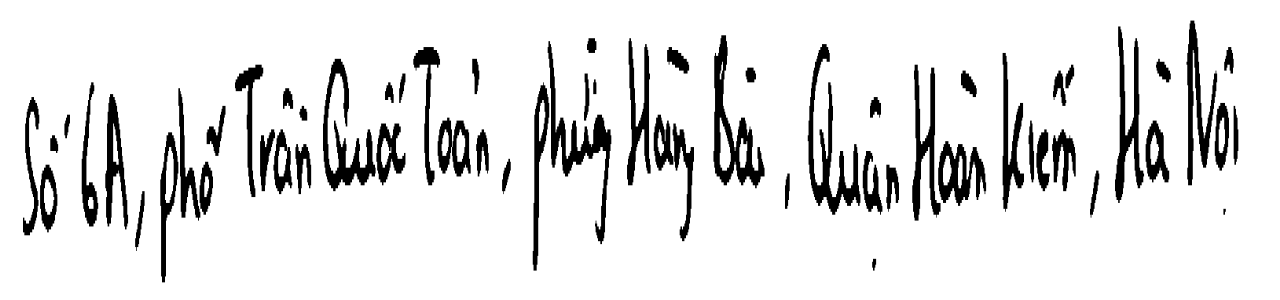 Số 6A, phố Trần Quốc Toản, phường Hàng Bài, Quận Hoàn Kiếm, Hà Nội